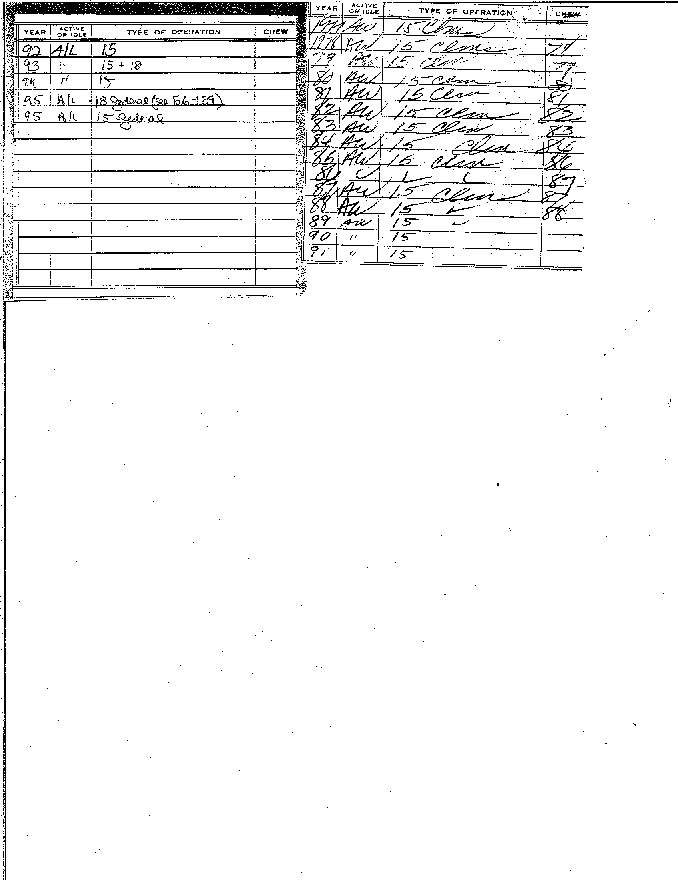 YEAR ACTIVE OR IDLE TYPE OF OPERATION CREW
92 A/L 15
93 " 15 + 18
94 " 15
95 A/L 18 federal (see 56-129)
95 A/L 15 federal
YEAR ACTIVE OR IDLE TYPE OF OPERATION CREW
1977 AW 15 Clms
1978 AW 15 Clms 79
79 AW 15 Clm
80 AW 15 Clm
81 AW 15 Clm 81
82 AW 15 Clm 82
83 AW 15 Clm 83
84 AW 15 Clm
85 AW 15 Clm 86
86
87 AW 15 Clm 87
88 AW 15 88
89 AW 15
90 " 15
91 " 15